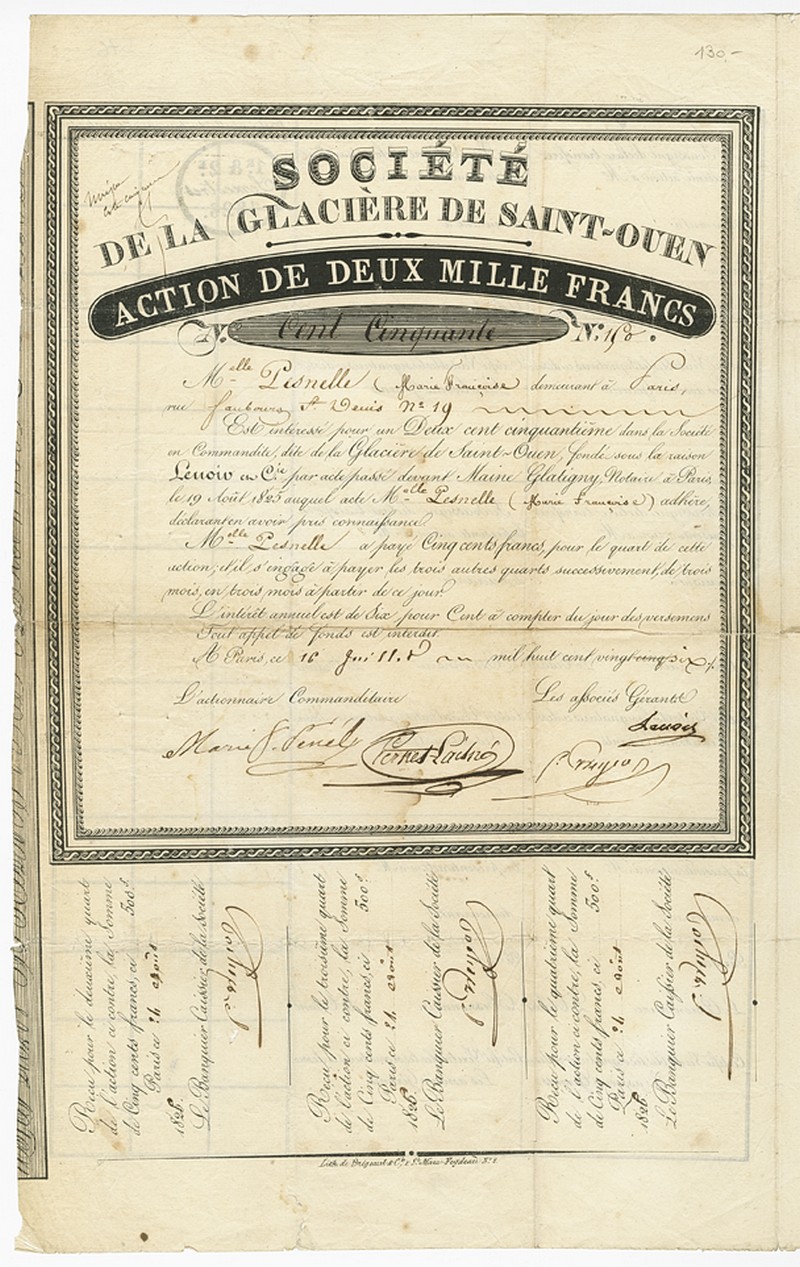 130.-
SOCIÉTÉ
DE LA GLACIÈRE DE SAINT-OUEN
ACTION DE DEUX MILLE FRANCS
N.º Cent Cinquante N.º 150.
M.elle Pesnelle (Marie Françoise) demeurant à Paris,
rue faubourg St Denis Nº 19
Est intéressé pour un Deux cent cinquantième dans la Société
en Commandite, dite de la Glacière de Saint-Ouen, fondé sous la raison
Lenoir et C.ie par acte passé devant Maine Glatigny, Notaire à Paris,
le 19 Août 1825 auquel acte M.elle Pesnelle (Marie Françoise) adhère,
déclarant en avoir pris connaissance.
M.elle Pesnelle a payé Cinq cents francs, pour le quart de cette
action, et il s'engage à payer les trois autres quarts successivement, de trois
mois, en trois mois à partir de ce jour.
L'intérêt annuel est de Six pour Cent à compter du jour des versemens
Tout appel de fonds est interdit.
A Paris, ce 16 Juillet mil huit cent vingt cinq six
L'actionnaire Commanditaire Les associés Gérants
Reçu pour le deuxième quart
de l'action ci contre, la Somme
de Cinq cents francs, ci 500f.
Paris ce 24 Août
1826
Le Banquier Caissier de la Société
Reçu pour le troisième quart
de l'action ci contre, la Somme
de Cinq cents francs, ci 500f.
Paris ce 24 Août
1826
Le Banquier Caissier de la Société
Reçu pour le quatrième quart
de l'action ci contre, la Somme
de Cinq cents francs, ci 500f.
Paris ce 24 Août
1826
Le Banquier Caissier de la Société
Lith. de Brégeaut & C.ie r. St. Marc-Feydeau N.º 8.